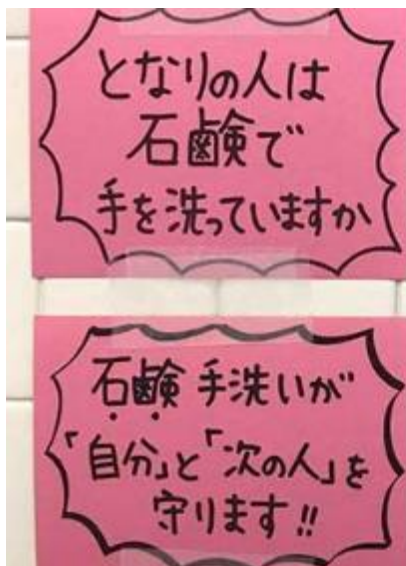 となりの人は
石鹸で
手を洗っていますか
石鹸手洗いが
「自分」と「次の人」を
守ります!!